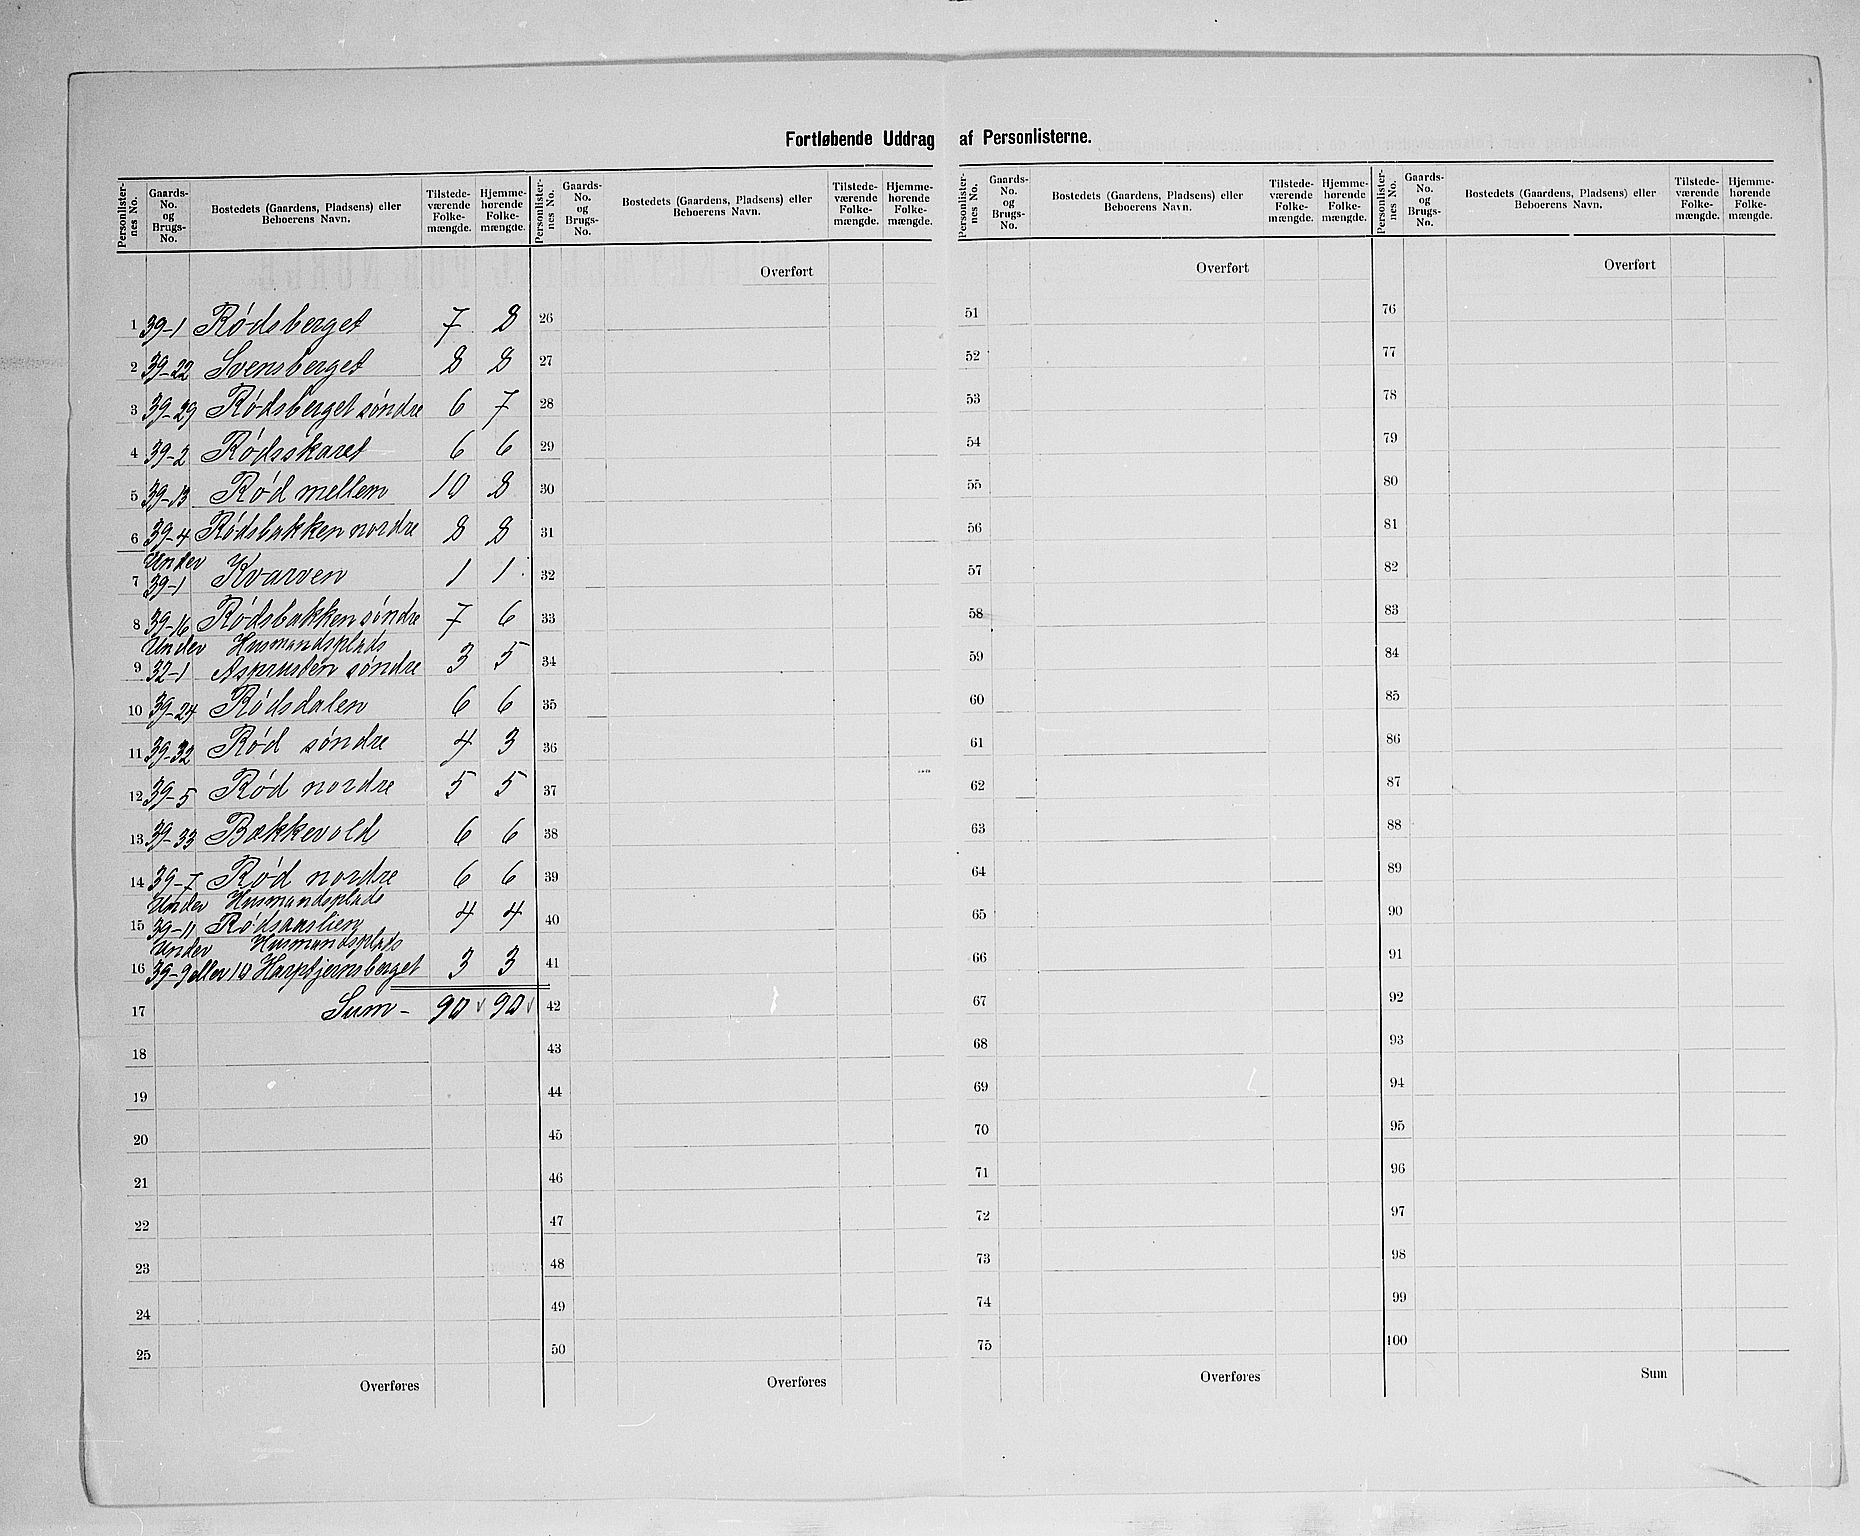 Fortløbende Uddrag af Personlisterne.
Personlister-nes No. Gaards-No. og Brugs-No. Bostedets (Gaardens, Pladsens) eller Beboerens Navn. Tilstede-værende Folke-mængde. Hjemme-hørende Folke-mængde. Personlister-nes No. Gaards-No. og Brugs-No. Bostedets (Gaardens, Pladsens) eller Beboerens Navn. Tilstede-værende Folke-mængde. Hjemme-hørende Folke-mængde. Personlister-nes No. Gaards-No. og Brugs-No. Bostedets (Gaardens, Pladsens) eller Beboerens Navn. Tilstede-værende Folke-mængde. Hjemme-hørende Folke-mængde. Personlister-nes No. Gaards-No. og Brugs-No. Bostedets (Gaardens, Pladsens) eller Beboerens Navn. Tilstede-værende Folke-mængde. Hjemme-hørende Folke-mængde.
Overført Overført Overført
1 39-1 Rødsberget 7 8 26 51 76
2 39-22 Svensberget 8 8 27 52 77
3 39-29 Rødsberget søndre 6 7 28 53 78
4 39-2 Rødsskaret 6 6 29 54 79
5 39-13 Rød mellem 10 8 30 55 80
6 39-4 Rødsbakken nordre 8 8 31 56 81
Under
7 39-1 Kvarven 1 1 32 57 82
8 39-16 Rødsbakken søndre 7 6 33 58 83
Under Husmandsplads
9 32-1 Asprusten søndre 3 5 34 59 84
10 39-24 Rødsdalen 6 6 35 60 85
11 39-32 Rød søndre 4 3 36 61 86
12 39-5 Rød nordre 5 5 37 62 87
13 39-33 Bækkevold 6 6 38 63 88
14 39-7 Rød nordre 6 6 39 64 89
Under Husmandsplads
15 39-11 Rødsaaslien 4 4 40 65 90
Under Husmandsplads
16 39-9 eller 10 Harptjernsberget 3 3 41 66 91
17 Sum - 90 90 42 67 92
18 43 68 93
19 44 69 94
20 45 70 95
21 46 71 96
22 47 72 97
23 48 73 98
24 49 74 99
25 50 75 100
Overføres Overføres Overføres Sum